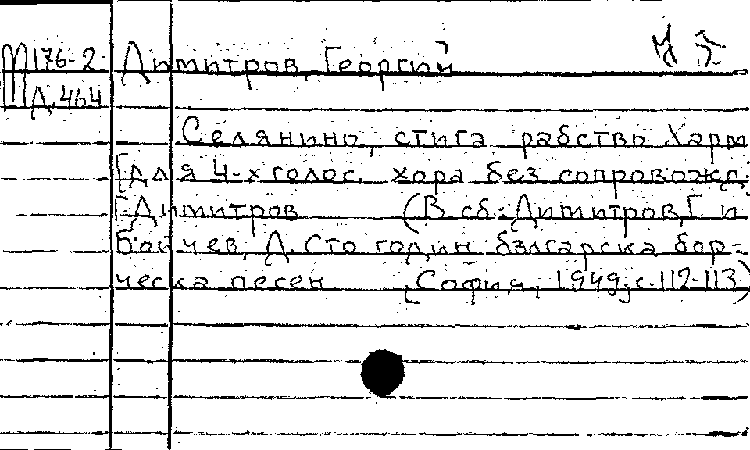 М176-2 Димитров, Георгий
Д.464
Селянино, стига рабство. Харм
[для 4-х голос. хора без сопровожд.]
Г. Димитров (В сб.: Димитров, Г. и
Бойчев, Д. Сто годин българска бор-
ческа песен [София, 1949, с. 112-113)